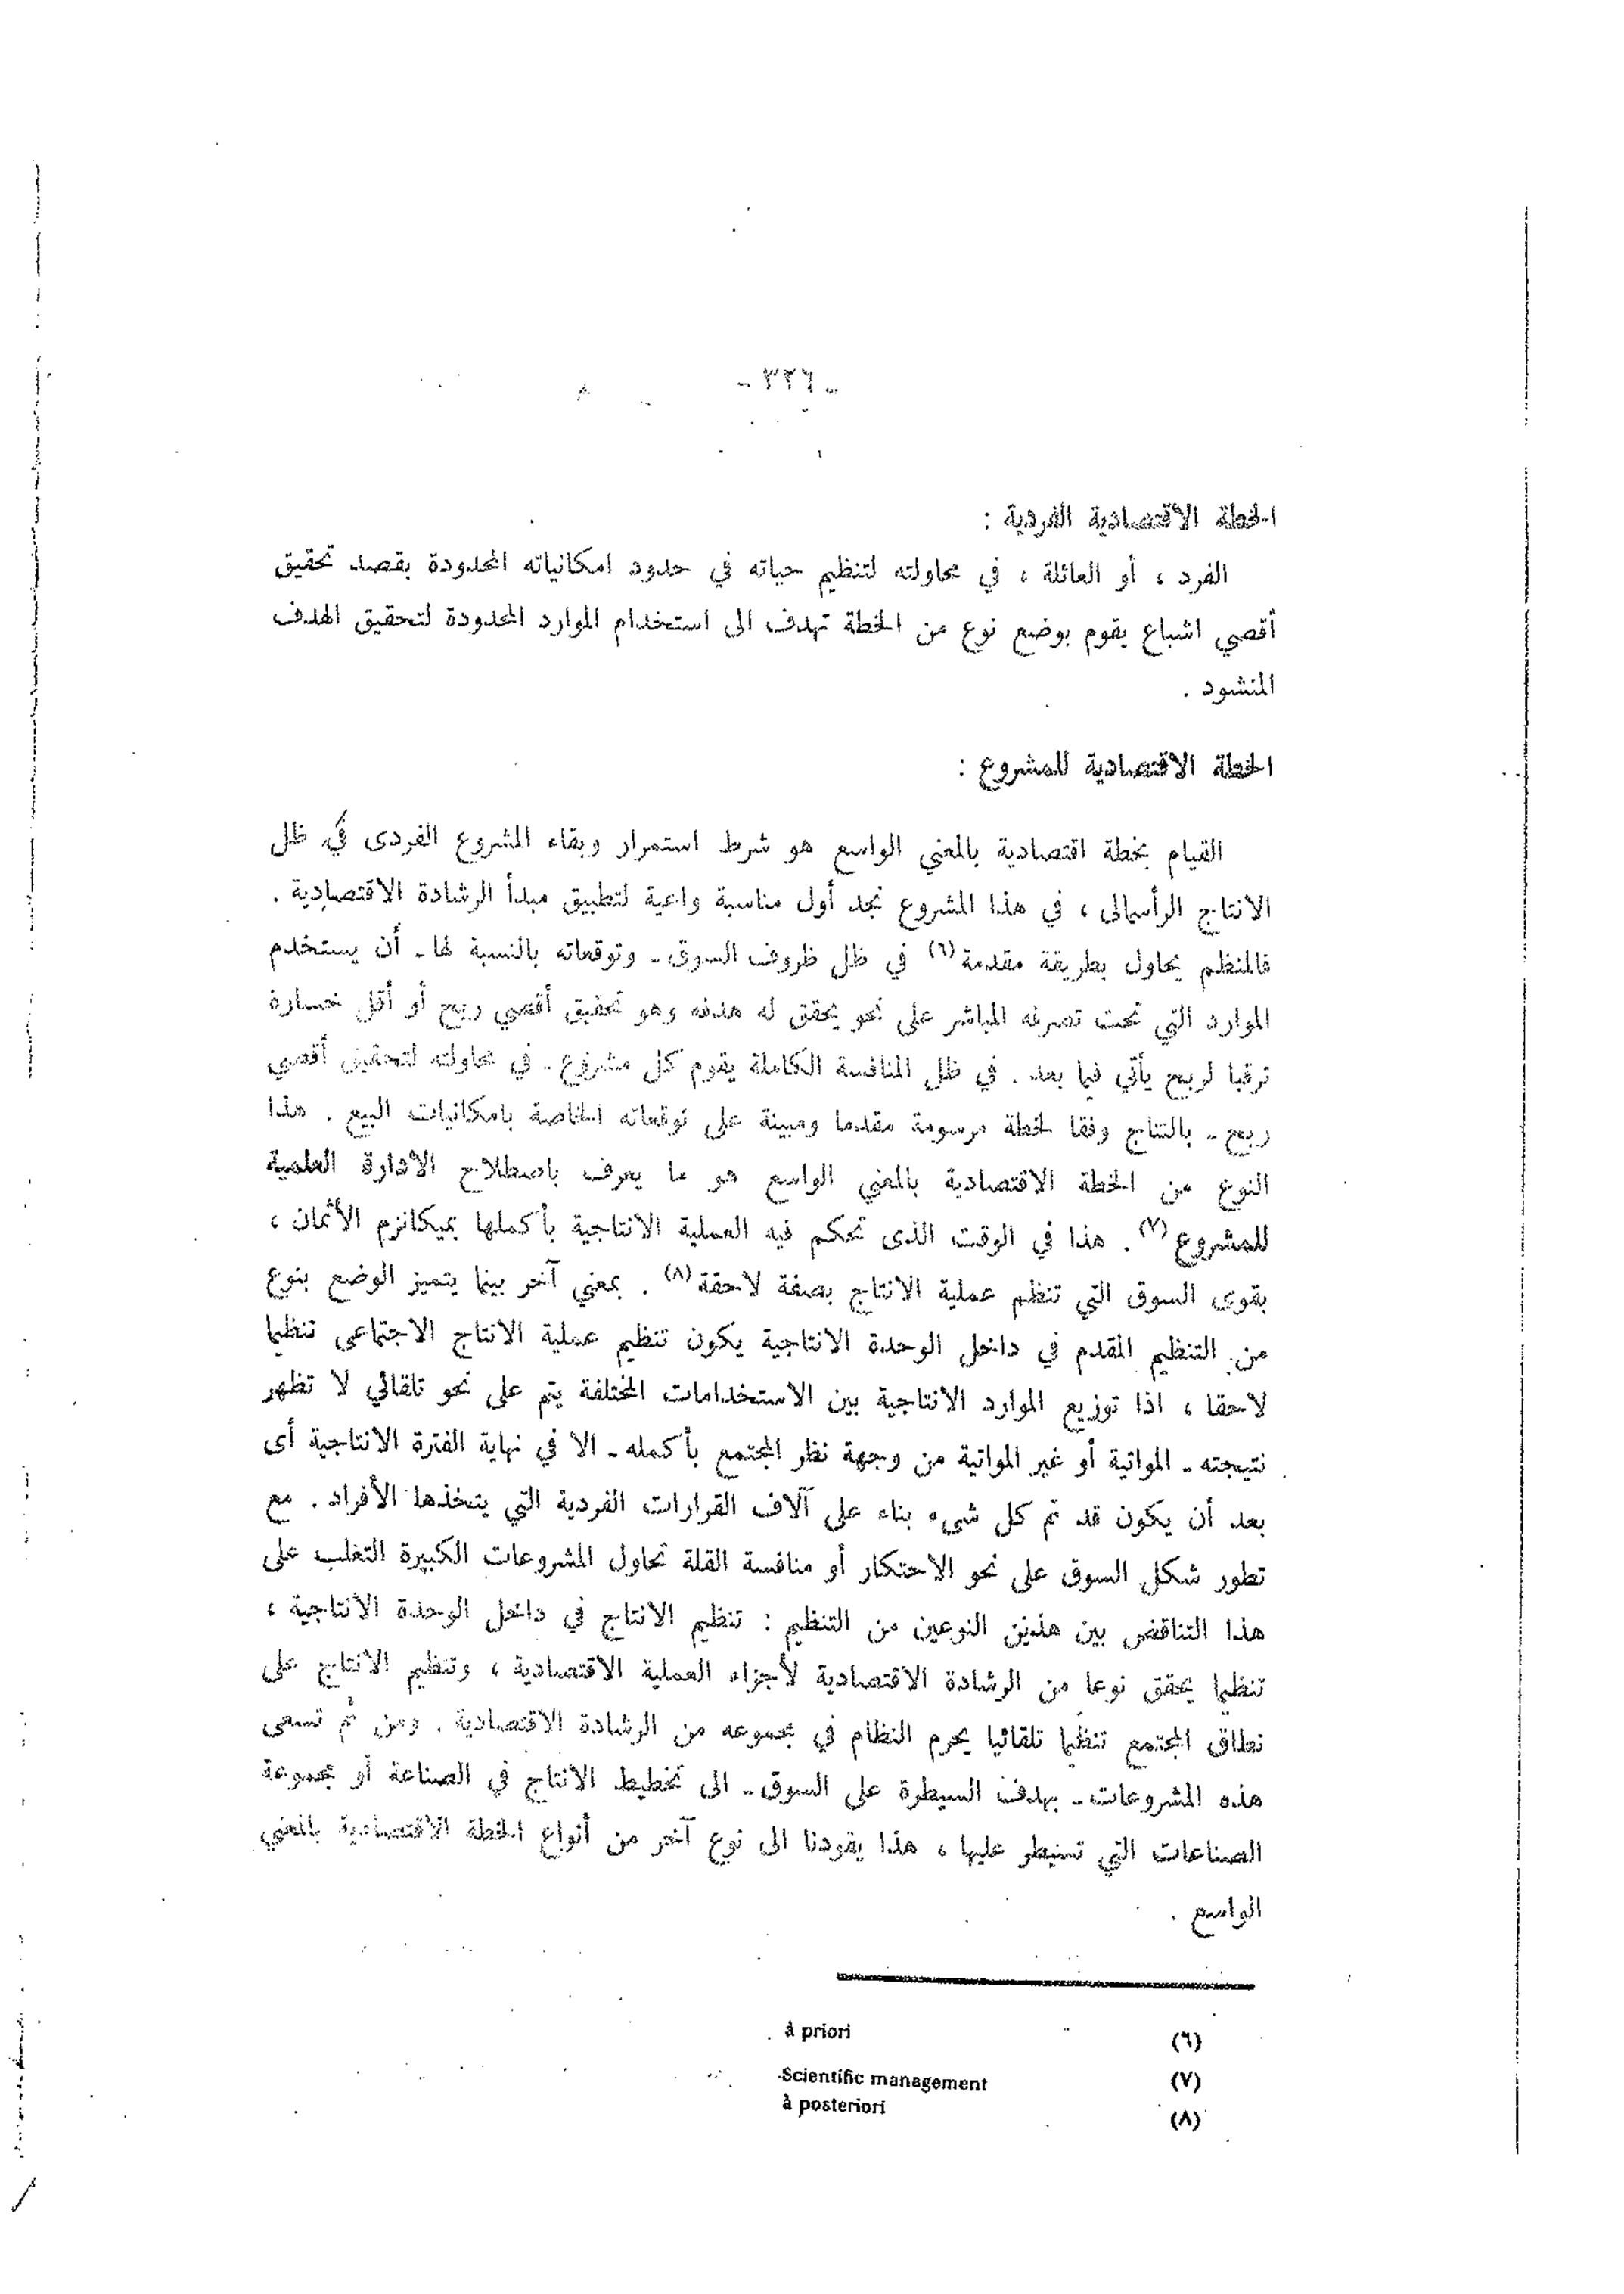 - ٣٢٦ -
الخطة الاقتصادية الفردية :
الفرد ، أو العائلة ، في محاولته لتنظيم حياته في حدود امكانياته المحدودة بقصد تحقيق
أقصي اشباع يقوم بوضع نوع من الخطة تهدف الى استخدام الموارد المحدودة لتحقيق الهدف
المنشود .
الخطة الاقتصادية للمشروع :
القيام بخطة اقتصادية بالمعني الواسع هو شرط استمرار وبقاء المشروع الفردى في ظل
الانتاج الرأسمالى ، في هذا المشروع نجد أول مناسبة واعية لتطبيق مبدأ الرشادة الاقتصادية .
فالمنظم يحاول بطريقة مقدمة(٦) في ظل ظروف السوق - وتوقعاته بالنسبة لها - أن يستخدم
الموارد التي تحت تصرفه المباشر على نحو يحقق له هدفه وهو تحقيق أقصي ربح أو أقل خسارة
ترقبا لربح يأتي فيما بعد . في ظل المنافسة الكاملة يقوم كل مشروع - في محاولته لتحقيق أقصي
ربح - بالنتاج وفقا لخطة مرسومة مقدما ومبينة على توقعاته الخاصة بامكانيات البيع . هذا
النوع من الخطة الاقتصادية بالمعني الواسع هو ما يعرف باصطلاح الادارة العلمية
للمشروع(٧) . هذا في الوقت الذى تحكم فيه العملية الانتاجية بأكملها بميكانزم الأثمان ،
بقوى السوق التي تنظم عملية الانتاج بصفة لاحقة(٨) . بمعني آخر بينما يتميز الوضع بنوع
من التنظيم المقدم في داخل الوحدة الانتاجية يكون تنظيم عملية الانتاج الاجتماعى تنظيما
لاحقا ، اذا توزيع الموارد الانتاجية بين الاستخدامات المختلفة يتم على نحو تلقائي لا تظهر
نتيجته - المواتية أو غير المواتية من وجهة نظر المجتمع بأكمله - الا في نهاية الفترة الانتاجية أى
بعد أن يكون قد تم كل شيء بناء على آلاف القرارات الفردية التي يتخذها الأفراد . مع
تطور شكل السوق على نحو الاحتكار أو منافسة القلة تحاول المشروعات الكبيرة التغلب على
هذا التناقض بين هذين النوعين من التنظيم : تنظيم الانتاج في داخل الوحدة الانتاجية ،
تنظيما يحقق نوعا من الرشادة الاقتصادية لأجزاء العملية الاقتصادية ، وتنظيم الانتاج على
نطاق المجتمع تنظيما تلقائيا يحرم النظام في مجموعه من الرشادة الاقتصادية . ومن ثم تسعى
هذه المشروعات - بهدف السيطرة على السوق - الى تخطيط الانتاج في الصناعة أو مجموعة
الصناعات التي تسيطر عليها ، هذا يقودنا الى نوع آخر من أنواع الخطة الاقتصادية بالمعني
الواسع .
(٦) à priori
(٧) Scientific management
(٨) à posteriori